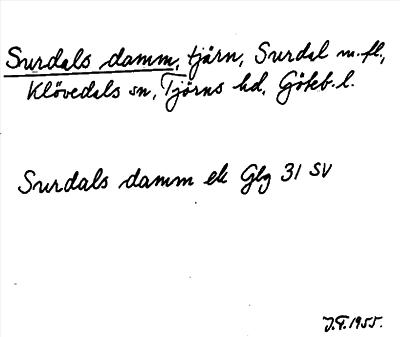 Surdals damm, tjärn, Surdal m.fl.,
Klövedals sn, Tjörns hd, Göteb. l.
Surdals damm ek Glg 31 SV
J.F. 1955.